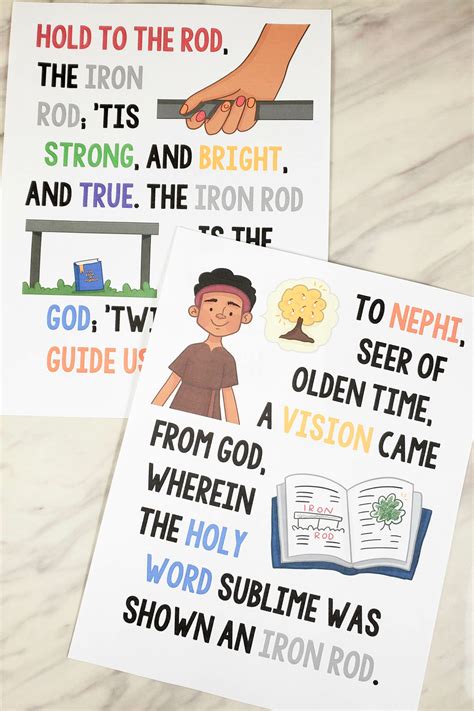 HOLD TO THE ROD,
THE IRON
ROD; 'TIS
STRONG, AND BRIGHT,
AND TRUE. THE IRON ROD
IS THE
GOD; 'TWI
GUIDE US
TO NEPHI,
SEER OF
OLDEN TIME,
A VISION CAME
FROM GOD,
WHEREIN
THE HOLY
WORD SUBLIME WAS
SHOWN AN IRON ROD.
IRON
ROD